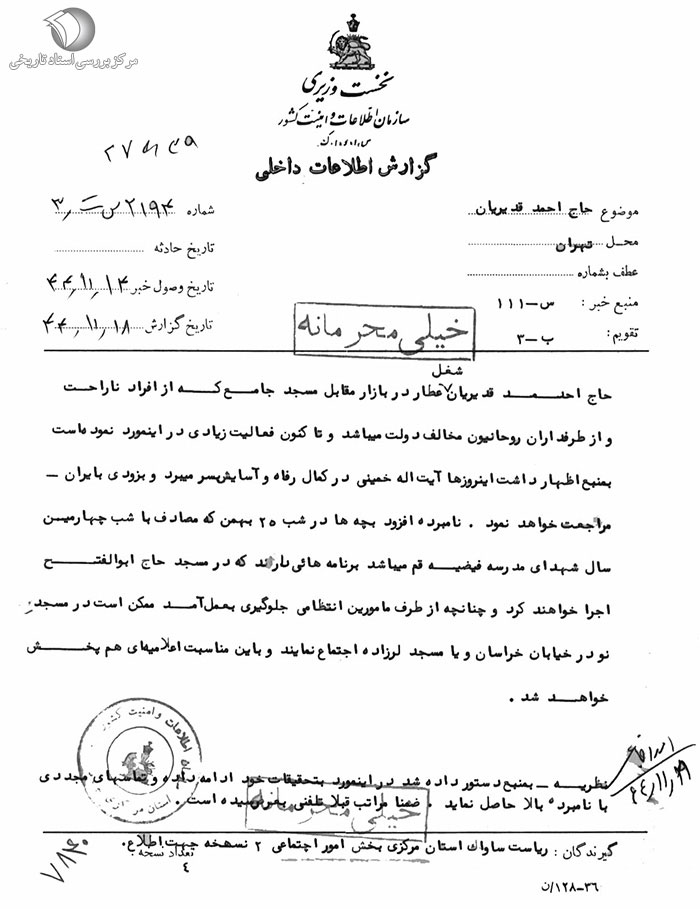 مرکز بررسی اسناد تاریخی
نخست وزیری
سازمان اطلاعات و امنیت کشور
س.ا.و.ا.ک
گزارش اطلاعات داخلی
موضوع حاج احمد قدیریان
محل تهران
عطف بشماره
منبع خبر : س-۱۱۱
تقویم : ب-۳
شماره
تاریخ حادثه
تاریخ وصول خبر ۴۴٫۱۱٫۱۴
تاریخ گزارش ۴۴٫۱۱٫۱۸
خیلی محرمانه
شغل
حاج احمد قدیریان عطار در بازار مقابل مسجد جامع که از افراد ناراحت
و از طرفداران روحانیون مخالف دولت میباشد و تا کنون فعالیت زیادی در اینمورد نموده است
بمنبع اظهار داشت اینروزها آیت اله خمینی در کمال رفاه و آسایش بسر میبرد و بزودی بایران -
مراجعت خواهد نمود . نامبرده افزود بچه ها در شب ۲۵ بهمن که مصادف با شب چهارمین
سال شهدای مدرسه فیضیه قم میباشد برنامه هائی دارند که در مسجد حاج ابوالفتح
اجرا خواهند کرد و چنانچه از طرف مامورین انتظامی جلوگیری بعمل آمد ممکن است در مسجد
نو در خیابان خراسان و یا مسجد لرزاده اجتماع نمایند و باین مناسبت اعلامیه‌ای هم پخش
خواهد شد .
نظریه - بمنبع دستور داده شد در اینمورد بتحقیقات خود ادامه داده و تماسهای مجددی
با نامبرده بالا حاصل نماید . ضمنا مراتب قبلا تلفنی بعرض رسیده است .
خیلی محرمانه
گیرندگان : ریاست ساواک استان مرکزی بخش امور اجتماعی ۲ نسخه جهت اطلاع.
تعداد نسخه :
۴
۳۶-۱۲۸/ن